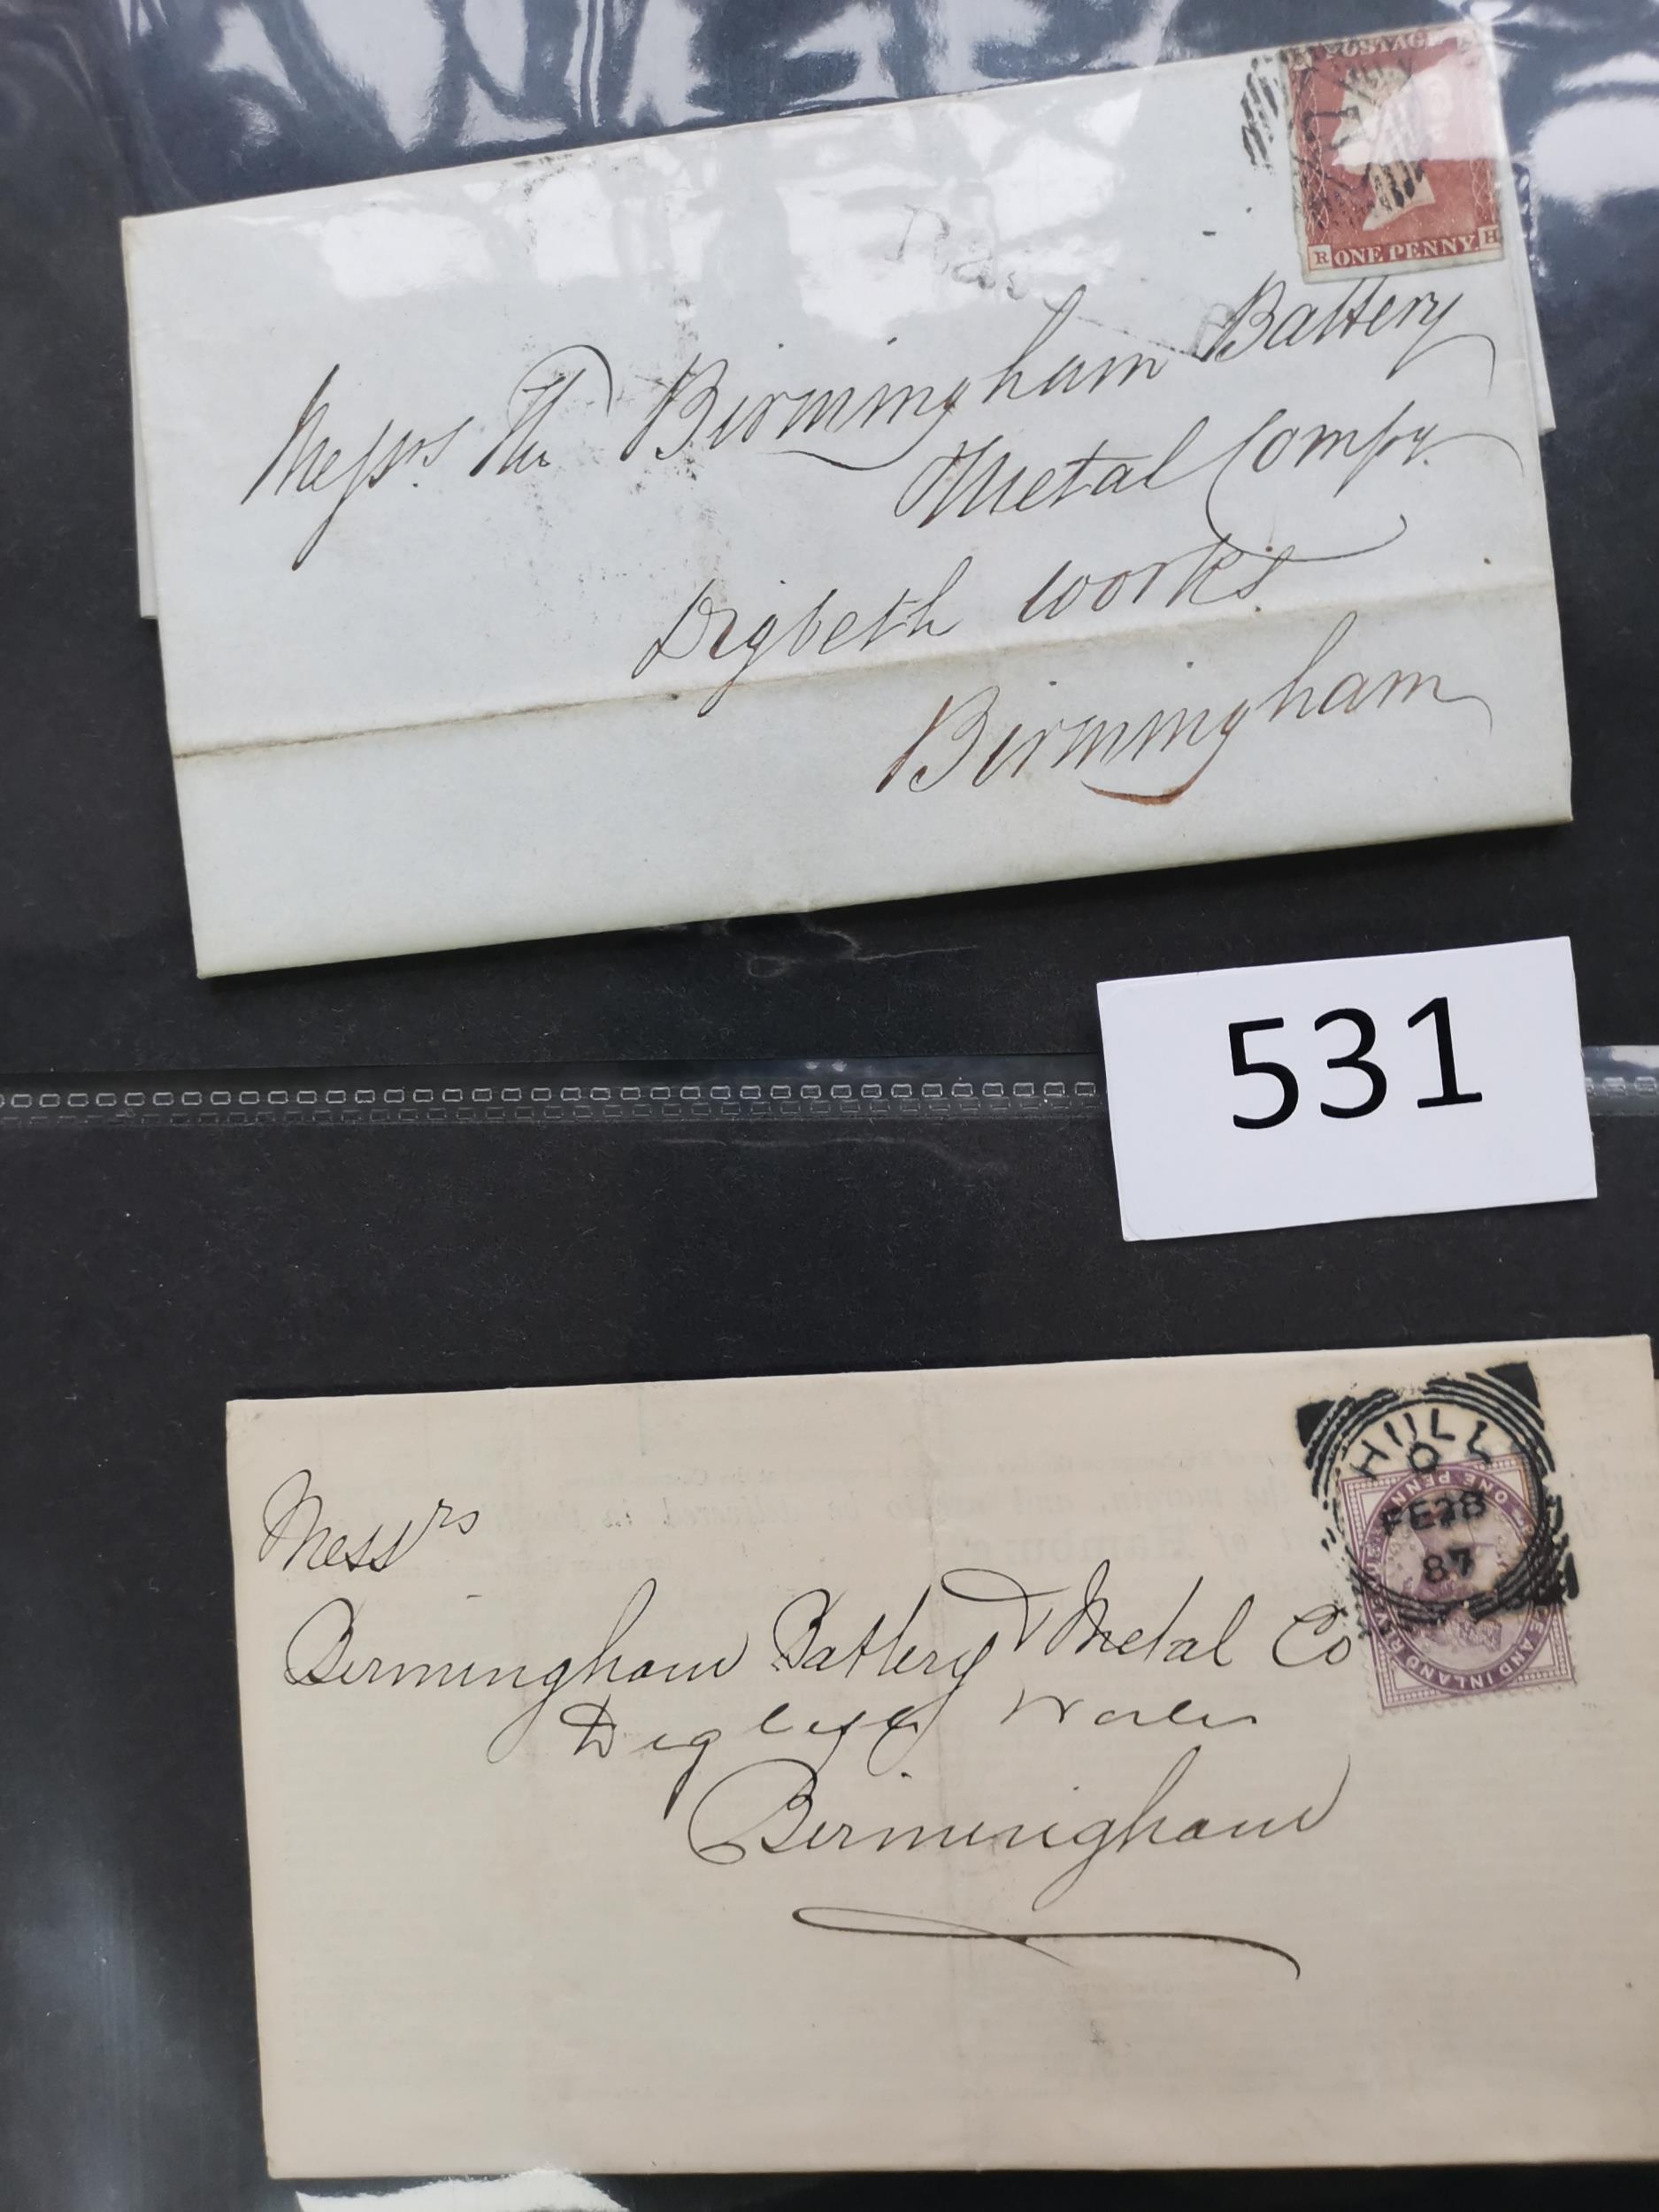 POSTAGE
R ONE PENNY H
Messrs. The Birmingham Battery
Metal Compy.
Digbeth Works
Birmingham
531
HULL
FE 28
87
ONE PENNY
AND INLAND REVENUE
Messrs
Birmingham Battery & Metal Co
Works
Birmingham